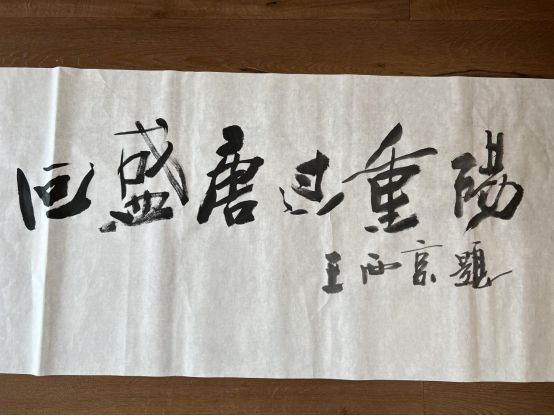 回盛唐过重陽
王西京题